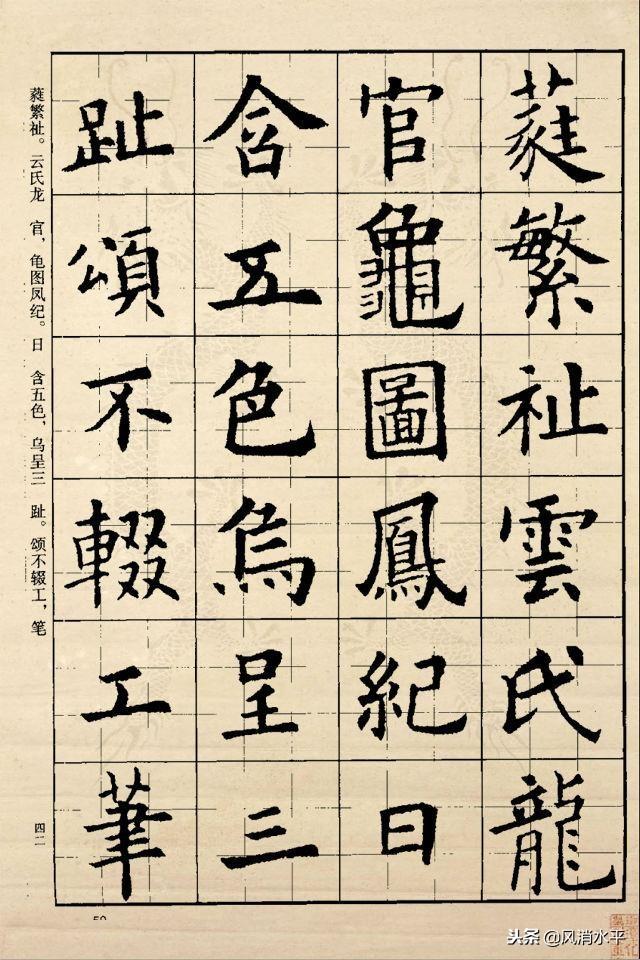 蕤繁祉雲氏龍
官龜圖鳳紀日
含五色烏呈三
趾頌不輟工筆
蕤繁祉。云氏龙 官，龟图凤纪。日 含五色，乌呈三 趾。颂不辍工，笔
四二
50
头条 @风消水平